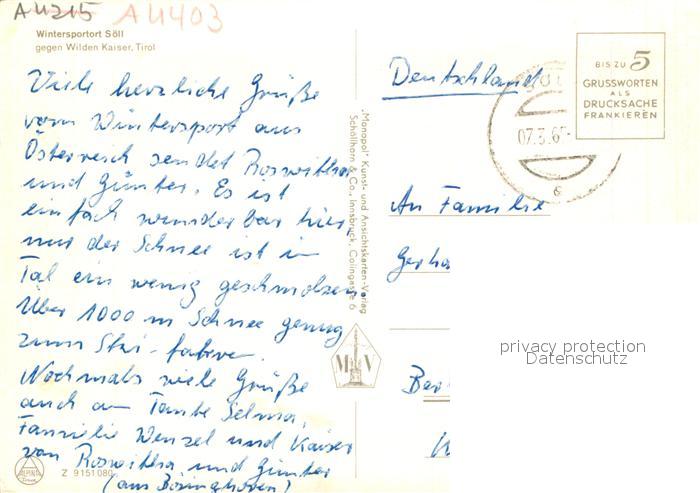 A4215 A4403
Wintersportort Söll
gegen Wilden Kaiser, Tirol
Viele herzliche Grüße
vom Wintersport aus
Österreich sendet Roswitha
und Günter. Es ist
einfach wunderbar hier,
nur der Schnee ist im
Tal ein wenig geschmolzen
Über 1000 m Schnee genug
zum Ski-fahren.
Nochmals viele Grüße
auch an Tante Selma,
Familie Wenzel und Kaiser
von Roswitha und Günter
(aus Bösinghoven)
ALPINA
Z 9151080
„Monopol" Kunst- und Ansichtskarten-Verlag
Schöllhorn & Co., Innsbruck, Colingasse 6
M V
Deutschland
07.3.6
6
BIS ZU 5
GRUSSWORTEN
ALS
DRUCKSACHE
FRANKIEREN
An Familie
Gerha
Ber
privacy protection
Datenschutz